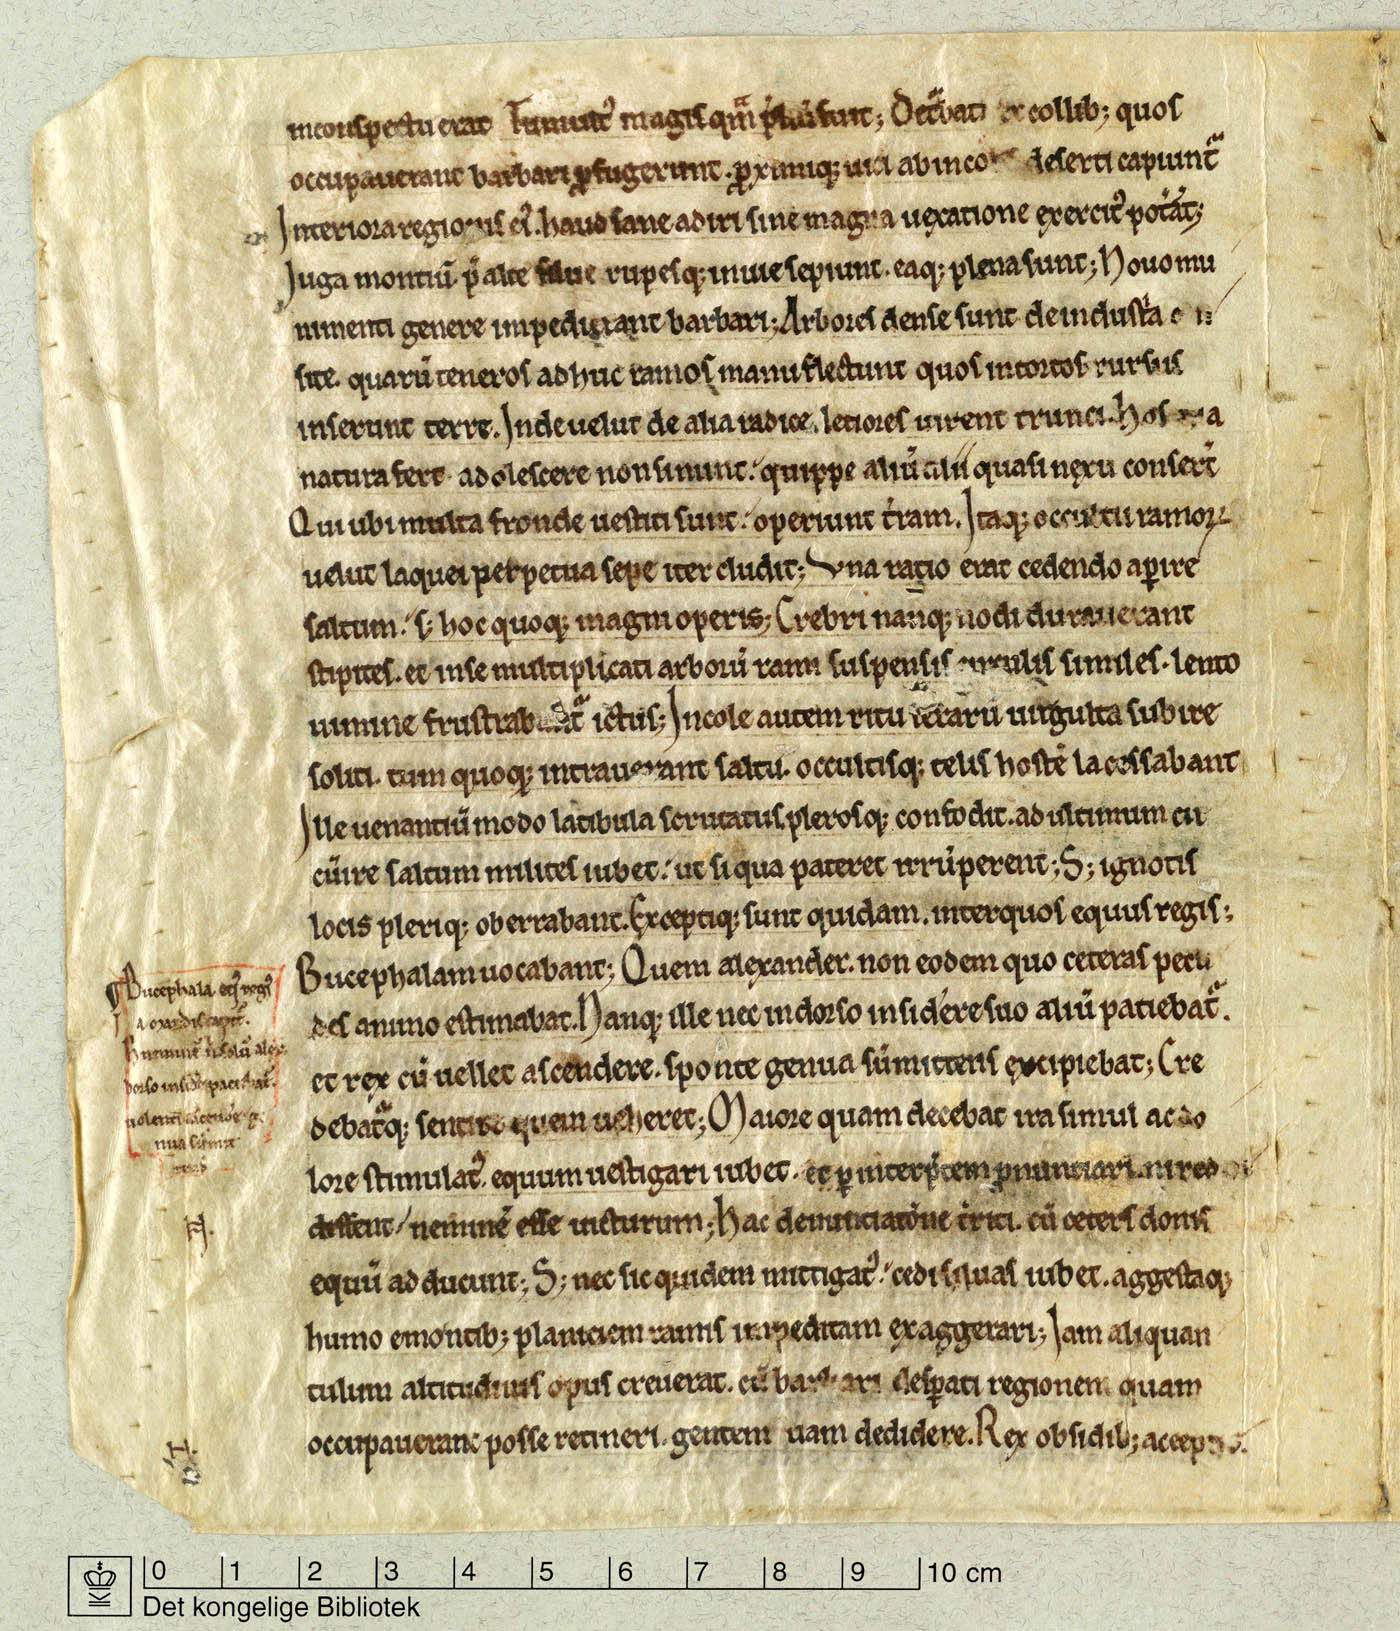 inconspectu erat Timuit᷒ magis qᷓm pluīsunt; Detᷓbati ex collib; quos
occupauerant barbari ꝓfugerunt. ꝓximiq; uici ab inco deserti capiuntᷓ
Interiora regionis ei᷒. haud sane adiri sine magna uęxatione exercit᷒ potᷓat;
Iuga montiū. p̄alte silue rupesq; inuie sepiunt. eaq; plena sunt; Nouo mu
nimenti genere impedierant barbari; Arbores dense sunt de industͥa
site. quarū teneros adhuc ramos manu flectunt quos intortos rursus
inserunt terrę. Inde uelut de alia radice. letiores uirent trunci. hos
natura fert adolescere non sinunt. quippe aliū alii quasi nęxu conserͭ
Qui ubi multa fronde uestiti sunt. operiunt t̓ram. Itaq; occulti ramoꝝ
uelut laquei perpetua sepe iter cludit; Vna ratio erat cedendo aꝑire
saltum. s; hoc quoq; magni operis; Crebri nanq; nodi durauerant
stipites. et in se multiplicati arborū rami suspensis circulis similes. lento
uimine frustrab ictus; Incole autem ritu ferarū uirgulta subire
soliti. tum quoq; intrauerant saltū. occultisq; telis hostē lacessabant
Ille uenantiū modo latibula scrutatus. plerosq; confodit. ad ultimum cir
cūire saltum milites iubet. ut si qua pateret irrūperent; S; ignotis
locis pleriq; oberrabant. Exceptiq; sunt quidam. inter quos equus regis;
Bucephalam uocabant; Quem alexander. non eodem quo ceteras pecu
des animo estimabat. Nanq; ille nec in dorso insidere suo aliū patiebatᷓ.
et rex cū uellet ascendere. sponte genua sūmittens excipiebat; Cre
debatᷓq; sentire quem ueheret; Maiore quam decebat ira simul ac do
lore stimulat᷒. equum uestigari iubet. et ꝑ interp̄tem ꝓnuntiari. ni red
dissent neminē esse uicturum; hac denuntiatōne t̓riti. cū ceteris donis
equū adducunt; S; nec sic quidem mitigat᷒. cedi siluas iubet. aggestaq;
humo e montib; planiciem ramis impeditam exaggerari; Iam aliquan
tulum altitudinis opus creuerat. cū barbari desꝑati regionem quam
occupauerant posse retineri. gentem uam dedidere. Rex obsidib; accep
Bucephala eq᷒ reg᷒
a mardis capt᷒.
dorso insid̓e patiebat᷒.
uolenti ascend̓e ge
nua sūmit